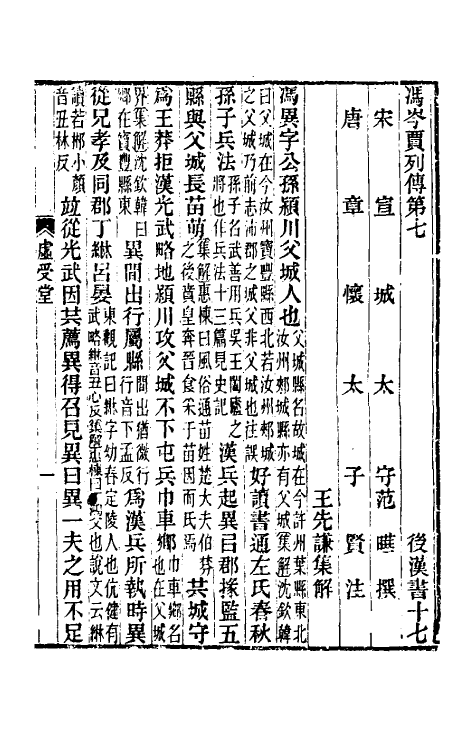 馮岑賈列傳第七　後漢書十七
宋宣城太守范曄撰
唐章懷太子賢注
王先謙集解
馮異字公孫潁川父城人也父城縣名故城在今許州葉縣東北汝州郟城縣亦有父城集解沈欽韓
曰父城在今汝州寶豐縣西北若汝州郟城之父城乃前志沛郡之城父非父城也注誤好讀書通左氏春秋
孫子兵法孫子名武善用兵吳王闔廬之將也作兵法十三篇見史記漢兵起異以郡掾監五
縣與父城長苗萌集解惠棟曰風俗通苗姓楚大夫伯棼之後賁皇奔晉食采于苗因而氏焉共城守
爲王莽拒漢光武略地潁川攻父城不下屯兵巾車鄉巾車鄉名也在父城
界集解沈欽韓曰鄉在寶豐縣東異間出行屬縣間出猶微行行音下孟反爲漢兵所執時異
從兄孝及同郡丁綝呂晏東觀記曰綝字幼春定陵人也伉健有武略綝音丑心反集解惠棟曰父也說文云綝
讀若郴小顏音丑林反竝從光武因共薦異得召見異曰異一夫之用不足
虛受堂
一